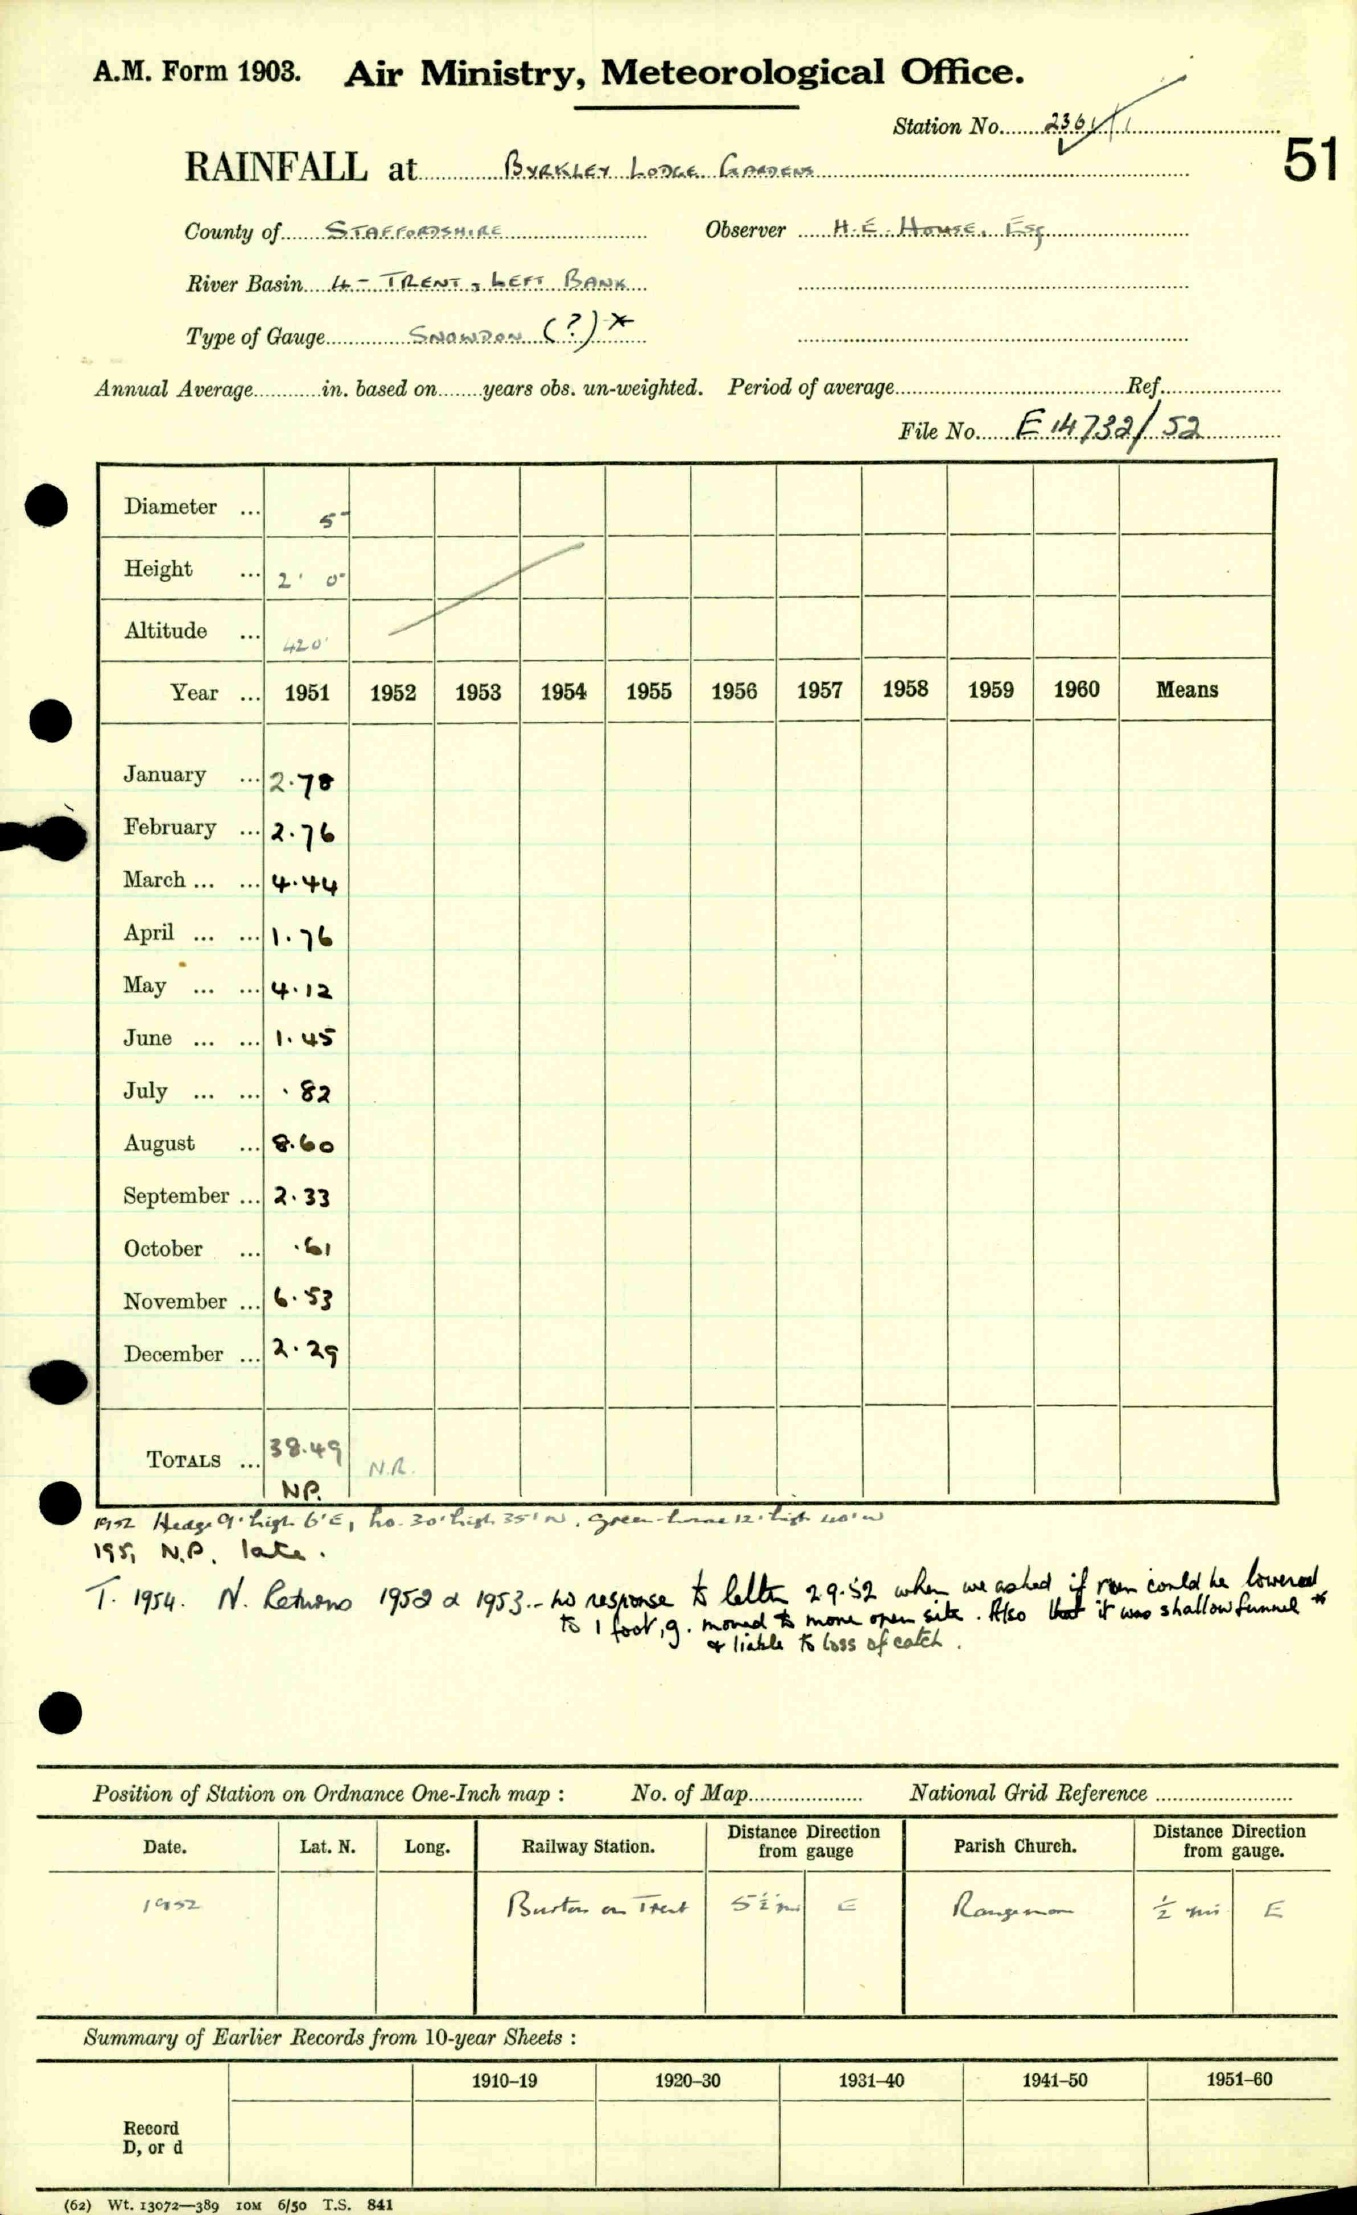 A.M. Form 1903. Air Ministry, Meteorological Office.
Station No. 2361/1
51
RAINFALL at Byrkley Lodge Gardens
County of Staffordshire Observer H.E. House, Esq
River Basin 4 - Trent, Left Bank
Type of Gauge Snowdon (?) *
Annual Average in. based on years obs. un-weighted. Period of average Ref.
File No. E 14732/52
Diameter ... 5"
Height ... 2' 0"
Altitude ... 420'
Year ... 1951 1952 1953 1954 1955 1956 1957 1958 1959 1960 Means
January ... 2.78
February ... 2.76
March ... ... 4.44
April ... ... 1.76
May ... ... 4.12
June ... ... 1.45
July ... ... .82
August ... 8.60
September ... 2.33
October ... .61
November ... 6.53
December ... 2.29
Totals ... 38.49 N.R.
NP.
1952 Hedge 9' high 6' E, ho. 30' high 35' N, Green-house 12' high 40' W
1951 N.P. late.
T. 1954. N. Returns 1952 & 1953 - no response to letter 2.9.52 when we asked if rim could be lowered
to 1 foot, g. moved to more open site. Also that it was shallow funnel *
& liable to loss of catch.
Position of Station on Ordnance One-Inch map : No. of Map National Grid Reference
Date. Lat. N. Long. Railway Station. Distance Direction from gauge Parish Church. Distance Direction from gauge.
1952 Burton on Trent 5½ mi E Rangemore ½ mi E
Summary of Earlier Records from 10-year Sheets :
1910–19 1920–30 1931–40 1941–50 1951–60
Record
D, or d
(62) Wt. 13072—389 10M 6/50 T.S. 841